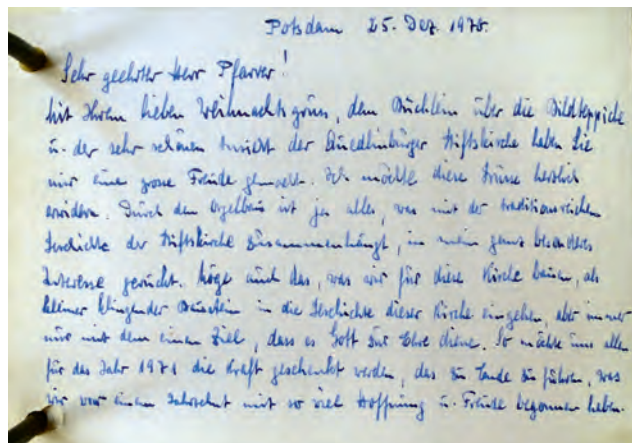 Potsdam 25. Dez. 1970.
Sehr geehrter Herr Pfarrer!
Mit Ihrem lieben Weihnachtsgruss, dem Büchlein über die Bildteppiche
u. der sehr schönen Ansicht der Quedlinburger Stiftskirche haben Sie
mir eine grosse Freude gemacht. Ich möchte diese Grüsse herzlich
erwidern. Durch den Orgelbau ist ja alles, was mit der traditionsreichen
Geschichte der Stiftskirche zusammenhängt, in mein ganz besonderes
Interesse gerückt. Möge auch das, was wir für diese Kirche bauen, als
kleiner klingender Baustein in die Geschichte dieser Kirche eingehen, aber immer
nur mit dem einen Ziel, dass es Gott zur Ehre diene. So möchte uns allen
für das Jahr 1971 die Kraft geschenkt werden, das zu Ende zu führen, was
wir vor einem Jahrzehnt mit so viel Hoffnung u. Freude begonnen haben.